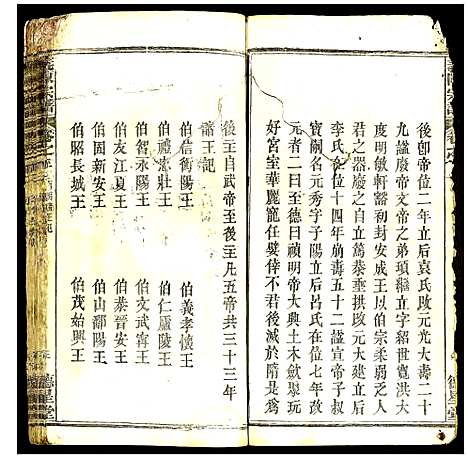 後卽帝位二年立后袁氏改元光大壽二十
九諡廢帝文帝之弟頊繼立字紹世貌洪大
度明敏軒豁初封安成王以伯宗柔弱乃人
君之器廢之自立篤恭垂拱改元大建立后
李氏在位十四年崩壽五十二諡宣帝子叔
寶嗣名元秀字子陽立后呂氏在位七年改
元者二曰至德曰禎明帝大興土木斂聚玩
好宮室華麗寵任嬖倖不君後滅於隋焉爲
後主自武帝至後主凡五帝共三十三年
諸王記
伯信衡陽王 伯義孝懷王
伯禮忠壯王 伯仁廬陵王
伯智永陽王 伯文武宵王
伯友江夏王 伯恭晉安王
伯固新安王 伯山鄱陽王
伯昭長城王 伯茂始興王
德星堂
德星堂